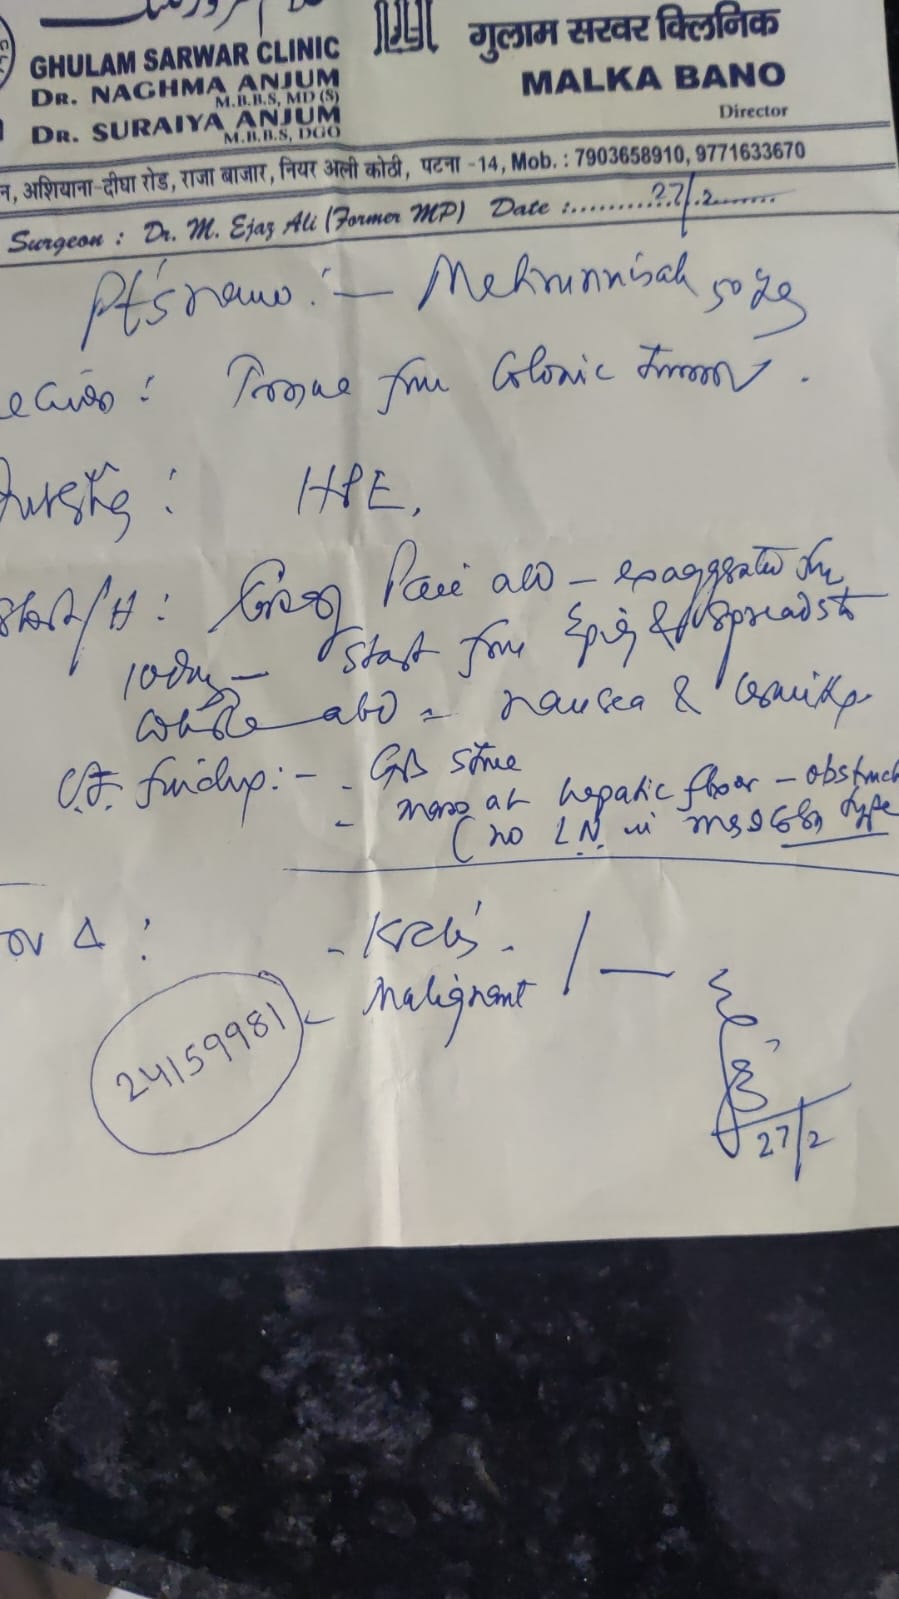 GHULAM SARWAR CLINIC
DR. NAGHMA ANJUM
M.B.B.S, MD (S)
DR. SURAIYA ANJUM
M.B.B.S, DGO
गुलाम सरवर क्लिनिक
MALKA BANO
Director
अशियाना-दीघा रोड, राजा बाजार, नियर अली कोठी, पटना -14, Mob. : 7903658910, 9771633670
Surgeon : Dr. M. Ejaz Ali (Former MP) Date :.........27/2.......
Pt's name :- Mehrunnisah 50 yrs
: Tissue from Colonic tumor.
: HPE.
Short/H : Pain abd - exaggerated from
10 days - start from Epig & spreads to
whole abd - nausea & vomiting
O.T. findings :- - GB stone
- mass at hepatic flexor - obstruct
(no L.N. in type
Δ : - Koch's -
- Malignant
24159981
27/2